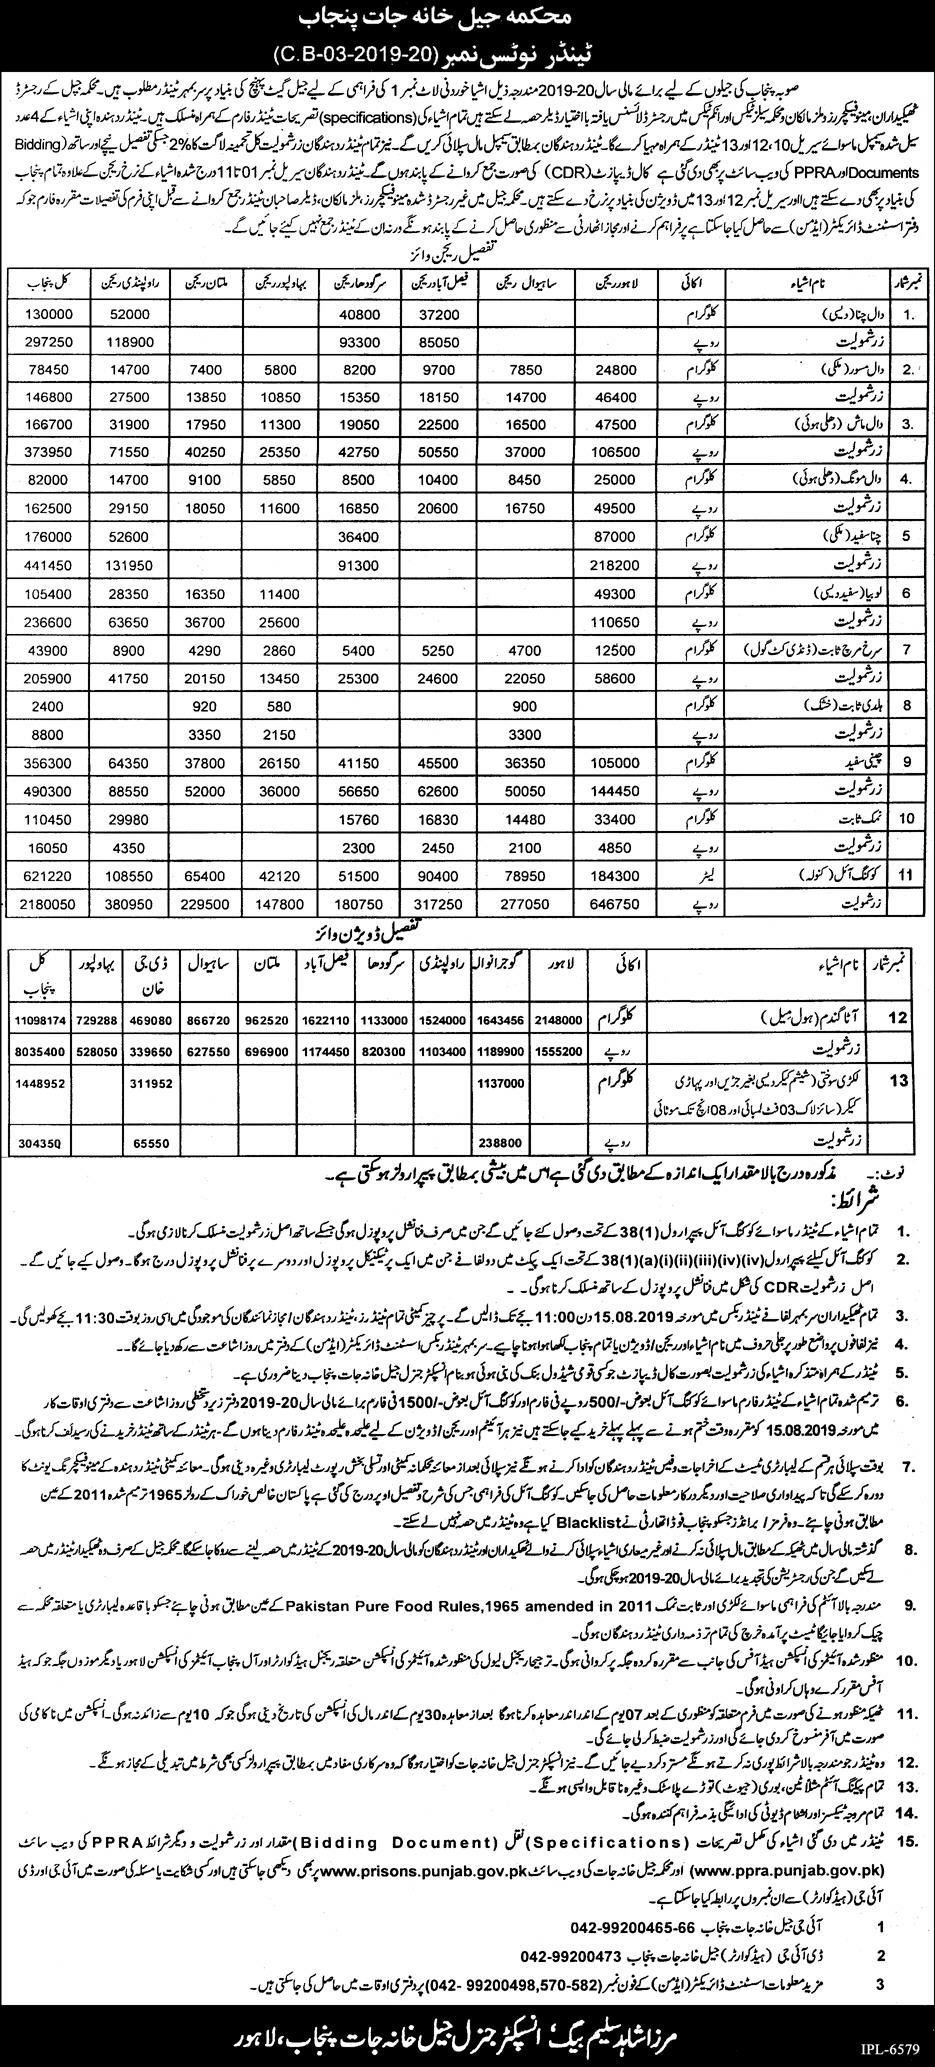 محکمہ جیل خانہ جات پنجاب
ٹینڈر نوٹس نمبر (C.B-03-2019-20)
صوبہ پنجاب کی جیلوں کے لیے برائے مالی سال 20-2019 مندرجہ ذیل اشیا خوردنی لاٹ نمبر 1 کی فراہمی کے لیے جیل گیٹ پہنچ کی بنیاد پر سر بمہر ٹینڈر مطلوب ہیں۔ محکمہ جیل کے رجسٹرڈ
ٹھیکیداران، مینوفیکچررز، ملز مالکان و محکمہ سیلز ٹیکس اور انکم ٹیکس میں رجسٹرڈ لائسنس یافتہ با اختیار ڈیلر حصہ لے سکتے ہیں تمام اشیاء کی (specifications) تصریحات ٹینڈر فارم کے ہمراہ منسلک ہیں۔ ٹینڈر دہندہ اپنی اشیاء کے 4 عدد
سیل شدہ سیمپل ماسوائے سیریل 10، 12 اور 13 ٹینڈر کے ہمراہ مہیا کرے گا۔ ٹینڈر دہندگان بمطابق سیمپل مال سپلائی کریں گے۔ نیز تمام ٹینڈر دہندگان زرشمولیت کل تخمینہ لاگت کا 2% جسکی تفصیل نیچے اور ساتھ (Bidding
Documents) اور PPRA کی ویب سائٹ پر بھی دی گئی ہے کال ڈیپازٹ (CDR) کی صورت جمع کروانے کے پابند ہوں گے۔ ٹینڈر دہندگان سیریل نمبر 01 تا 11 درج شدہ اشیاء کے نرخ ریجن کے علاوہ تمام پنجاب
کی بنیاد پر بھی دے سکتے ہیں اور سیریل نمبر 12 اور 13 میں ڈویژن کی بنیاد پر نرخ دے سکتے ہیں۔ محکمہ جیل میں غیر رجسٹرڈ شدہ مینوفیکچررز، ملز مالکان، ڈیلر صاحبان ٹینڈر جمع کروانے سے قبل اپنی فرم کی تفصیلات مقررہ فارم جو کہ
دفتر اسسٹنٹ ڈائریکٹر (ایڈمن) سے حاصل کیا جا سکتا ہے پر فراہم کرنے اور مجاز اتھارٹی سے منظوری حاصل کرنے کے پابند ہونگے ورنہ ان کے ٹینڈر جمع نہیں کئے جائیں گے۔
تفصیل ریجن وائز
نمبر شمار نام اشیاء اکائی لاہور ریجن ساہیوال ریجن فیصل آباد ریجن سرگودھا ریجن بہاولپور ریجن ملتان ریجن راولپنڈی ریجن کل پنجاب
1. دال چنا (دیسی) کلوگرام 37200 40800 52000 130000
زرشمولیت روپے 85050 93300 118900 297250
2. دال مسور (ملکی) کلوگرام 24800 7850 9700 8200 5800 7400 14700 78450
زرشمولیت روپے 46400 14700 18150 15350 10850 13850 27500 146800
3. دال ماش (دھلی ہوئی) کلوگرام 47500 16500 22500 19050 11300 17950 31900 166700
زرشمولیت روپے 106500 37000 50550 42750 25350 40250 71550 373950
4. دال مونگ (دھلی ہوئی) کلوگرام 25000 8450 10400 8500 5850 9100 14700 82000
زرشمولیت روپے 49500 16750 20600 16850 11600 18050 29150 162500
5 چنا سفید (ملکی) کلوگرام 87000 36400 52600 176000
زرشمولیت روپے 218200 91300 131950 441450
6 لوبیا (سفید دیسی) کلوگرام 49300 11400 16350 28350 105400
زرشمولیت روپے 110650 25600 36700 63650 236600
7 سرخ مرچ ثابت (ڈنڈی کٹ گول) کلوگرام 12500 4700 5250 5400 2860 4290 8900 43900
زرشمولیت روپے 58600 22050 24600 25300 13450 20150 41750 205900
8 ہلدی ثابت (خشک) کلوگرام 900 580 920 2400
زرشمولیت روپے 3300 2150 3350 8800
9 چینی سفید کلوگرام 105000 36350 45500 41150 26150 37800 64350 356300
زرشمولیت روپے 144450 50050 62600 56650 36000 52000 88550 490300
10 نمک ثابت کلوگرام 33400 14480 16830 15760 29980 110450
زرشمولیت روپے 4850 2100 2450 2300 4350 16050
11 کوکنگ آئل (کنولہ) لیٹر 184300 78950 90400 51500 42120 65400 108550 621220
زرشمولیت روپے 646750 277050 317250 180750 147800 229500 380950 2180050
تفصیل ڈویژن وائز
نمبر شمار نام اشیاء اکائی لاہور گوجرانوالہ راولپنڈی سرگودھا فیصل آباد ملتان ساہیوال ڈی جی خان بہاولپور کل پنجاب
12 آٹا گندم (ہول میل) کلوگرام 2148000 1643456 1524000 1133000 1622110 962520 866720 469080 729288 11098174
زرشمولیت روپے 1555200 1189900 1103400 820300 1174450 696900 627550 339650 528050 8035400
13 لکڑی سوختی (شیشم کیکر دیسی بغیر جڑیں اور پہاڑی کلوگرام 1137000 311952 1448952
کیکر (سائز لاگ 03 فٹ لمبائی اور 08 انچ تک موٹائی
زرشمولیت روپے 238800 65550 304350
نوٹ:۔ مذکورہ درج بالا مقدار ایک اندازہ کے مطابق دی گئی ہے اس میں بیشی بمطابق پیپرا رولز ہو سکتی ہے۔
شرائط:
1. تمام اشیاء کے ٹینڈر ماسوائے کوکنگ آئل پیپرا رول 38(1) کے تحت وصول کئے جائیں گے جن میں صرف فنانشل پروپوزل ہوگی جسکے ساتھ اصل زرشمولیت منسلک کرنا لازمی ہوگی۔
2. کوکنگ آئل کیلئے پیپرا رول 38(1)(a)(i)(ii)(iii)(iv)(iv) کے تحت ایک پیکٹ میں دو لفافے جن میں ایک پر ٹیکنیکل پروپوزل اور دوسرے پر فنانشل پروپوزل درج ہوگا۔ وصول کیے جائیں گے۔
اصل زرشمولیت CDR کی شکل میں فنانشل پروپوزل کے ساتھ منسلک کرنا ہوگی۔
3. تمام ٹھیکیداران سر بمہر لفافے ٹینڈر بکس میں مورخہ 15.08.2019 دن 11:00 بجے تک ڈالیں گے۔ پرچیز کمیٹی تمام ٹینڈرز، ٹینڈر دہندگان / مجاز نمائندگان کی موجودگی میں اسی روز بوقت 11:30 بجے کھولیں گی۔
4. نیز لفافوں پر واضع طور پر جلی حروف میں نام اشیاء اور ریجن / ڈویژن یا تمام پنجاب لکھا ہوا ہونا چاہیے۔ سر بمہر ٹینڈر بکس اسسٹنٹ ڈائریکٹر (ایڈمن) کے دفتر میں روز اشاعت سے رکھ دیا جائے گا۔
5. ٹینڈر کے ہمراہ متذکرہ اشیاء کی زرشمولیت بصورت کال ڈیپازٹ جو کسی قومی شیڈول بنک کی بنی ہوئی ہو بنام انسپکٹر جنرل جیل خانہ جات پنجاب دینا ضروری ہے۔
6. ترمیم شدہ تمام اشیاء کے ٹینڈر فارم ماسوائے کوکنگ آئل بعوض -/500 روپے فی فارم اور کوکنگ آئل بعوض -/1500 فی فارم برائے مالی سال 20-2019 دفتر زیر دستخطی روز اشاعت سے دفتری اوقات کار
میں مورخہ 15.08.2019 کو مقررہ وقت ختم ہونے سے پہلے پہلے خرید کیے جا سکتے ہیں نیز ہر آئیٹم اور ریجن / ڈویژن کے لیے علیحدہ علیحدہ ٹینڈر فارم دینا ہوں گے۔ ہر ٹینڈر کے ساتھ ٹینڈر خریدنے کی رسید لف کرنا ہوگی۔
7. بوقت سپلائی ہر قسم کے لیبارٹری ٹیسٹ کے اخراجات و فیس ٹینڈر دہندگان کو ادا کرنے ہونگے نیز سپلائی بعد از معائنہ محکمانہ کمیٹی اور تسلی بخش رپورٹ لیبارٹری وغیرہ دینی ہوگی۔ معائنہ کمیٹی ٹینڈر دہندہ کے مینوفیکچرنگ یونٹ کا
دورہ کرسکے گی تاکہ پیداواری صلاحیت اور دیگر درکار معلومات حاصل کی جاسکیں۔ کوکنگ آئل کی فراہمی جس کی شرح تفصیل اوپر درج کی گئی ہے پاکستان خالص خوراک کے رولز 1965 ترمیم شدہ 2011 کے عین
مطابق ہونی چاہیئے۔ وہ فرمز / برانڈز جسکو پنجاب فوڈ اتھارٹی نے Blacklist کیا ہے وہ ٹینڈر میں حصہ نہیں لے سکتے۔
8. گذشتہ مالی سال میں ٹھیکہ کے مطابق مال سپلائی نہ کرنے اور غیر معیاری اشیاء سپلائی کرنے والے ٹھیکیداران اور ٹینڈر دہندگان کو مالی سال 20-2019 کے ٹینڈر میں حصہ لینے سے روکا جا سکے گا۔ محکمہ جیل کے صرف وہ ٹھیکیدار ٹینڈر میں حصہ
لے سکیں گے جن کی رجسٹریشن کی تجدید برائے مالی سال 20-2019 ہو چکی ہوگی۔
9. مندرجہ بالا آئٹم کی فراہمی ماسوائے لکڑی اور ثابت نمک Pakistan Pure Food Rules,1965 amended in 2011 کے عین مطابق ہونی چاہیئے جسکو باقاعدہ لیبارٹری یا متعلقہ محکمہ سے
چیک کروایا جائیگا ٹیسٹ پر آمدہ خرچ کی تمام تر ذمہ داری ٹینڈر دہندگان ہوگی۔
10. منظور شدہ آئیٹمز کی انسپکشن ہیڈ آفس کی جانب سے مقررہ کردہ جگہ پر کروانی ہوگی۔ ترجیحاً ریجنل لیول کی منظور شدہ آئیٹمز کی انسپکشن متعلقہ ریجنل ہیڈ کوارٹر اور آل پنجاب آئیٹمز کی انسپکشن لاہور یا دیگر موزوں جگہ جو کہ ہیڈ
آفس مقرر کرے وہاں کراونی ہوگی۔
11. ٹھیکہ منظور ہونے کی صورت میں فرم متعلقہ کو منظوری کے بعد 07 یوم کے اندر اندر معاہدہ کرنا ہوگا بعد از معاہدہ 30 یوم کے اندر مال کی انسپکشن کی تاریخ دینی ہوگی جو کہ 10 یوم سے زائد نہ ہوگی۔ انسپکشن میں ناکامی کی
صورت میں آفر منسوخ کر دی جائے گی اور زرشمولیت ضبط کر لی جائے گی۔
12. وہ ٹینڈر جو مندرجہ بالا شرائط پوری نہ کرتے ہونگے مسترد کر دیے جائیں گے۔ نیز انسپکٹر جنرل جیل خانہ جات کو اختیار ہوگا کہ وہ سرکاری مفاد میں بمطابق پیپرا رولز کسی بھی شرط میں تبدیلی کے مجاز ہونگے۔
13. تمام پیکنگ آئٹم مثلاً ٹین، بوری (جیوٹ) توڑے پلاسٹک وغیرہ ناقابل واپسی ہونگے۔
14. تمام مروجہ ٹیکسز اور اشٹام ڈیوٹی کی ادائیگی بذمہ فراہم کنندہ ہوگی۔
15. ٹینڈر میں دی گئی اشیاء کی مکمل تصریحات (Specifications) نقل (Bidding Document) مقدار اور زرشمولیت و دیگر شرائط PPRA کی ویب سائٹ
(www.ppra.punjab.gov.pk) اور محکمہ جیل خانہ جات کی ویب سائٹ www.prisons.punjab.gov.pk پر بھی دیکھی جا سکتی ہیں اور کسی شکایت یا مسئلہ کی صورت میں آئی جی اور ڈی
آئی جی (ہیڈ کوارٹر) سے ان نمبروں پر رابطہ کیا جا سکتا ہے۔
1 آئی جی جیل خانہ جات پنجاب 042-99200465-66
2 ڈی آئی جی (ہیڈ کوارٹر) جیل خانہ جات پنجاب 042-99200473
3 مزید معلومات اسسٹنٹ ڈائریکٹر (ایڈمن) کے فون نمبر (042- 99200498,570-582) پر دفتری اوقات میں حاصل کی جا سکتی ہیں۔
مرزا شاہد سلیم بیگ، انسپکٹر جنرل جیل خانہ جات پنجاب، لاہور
IPL-6579